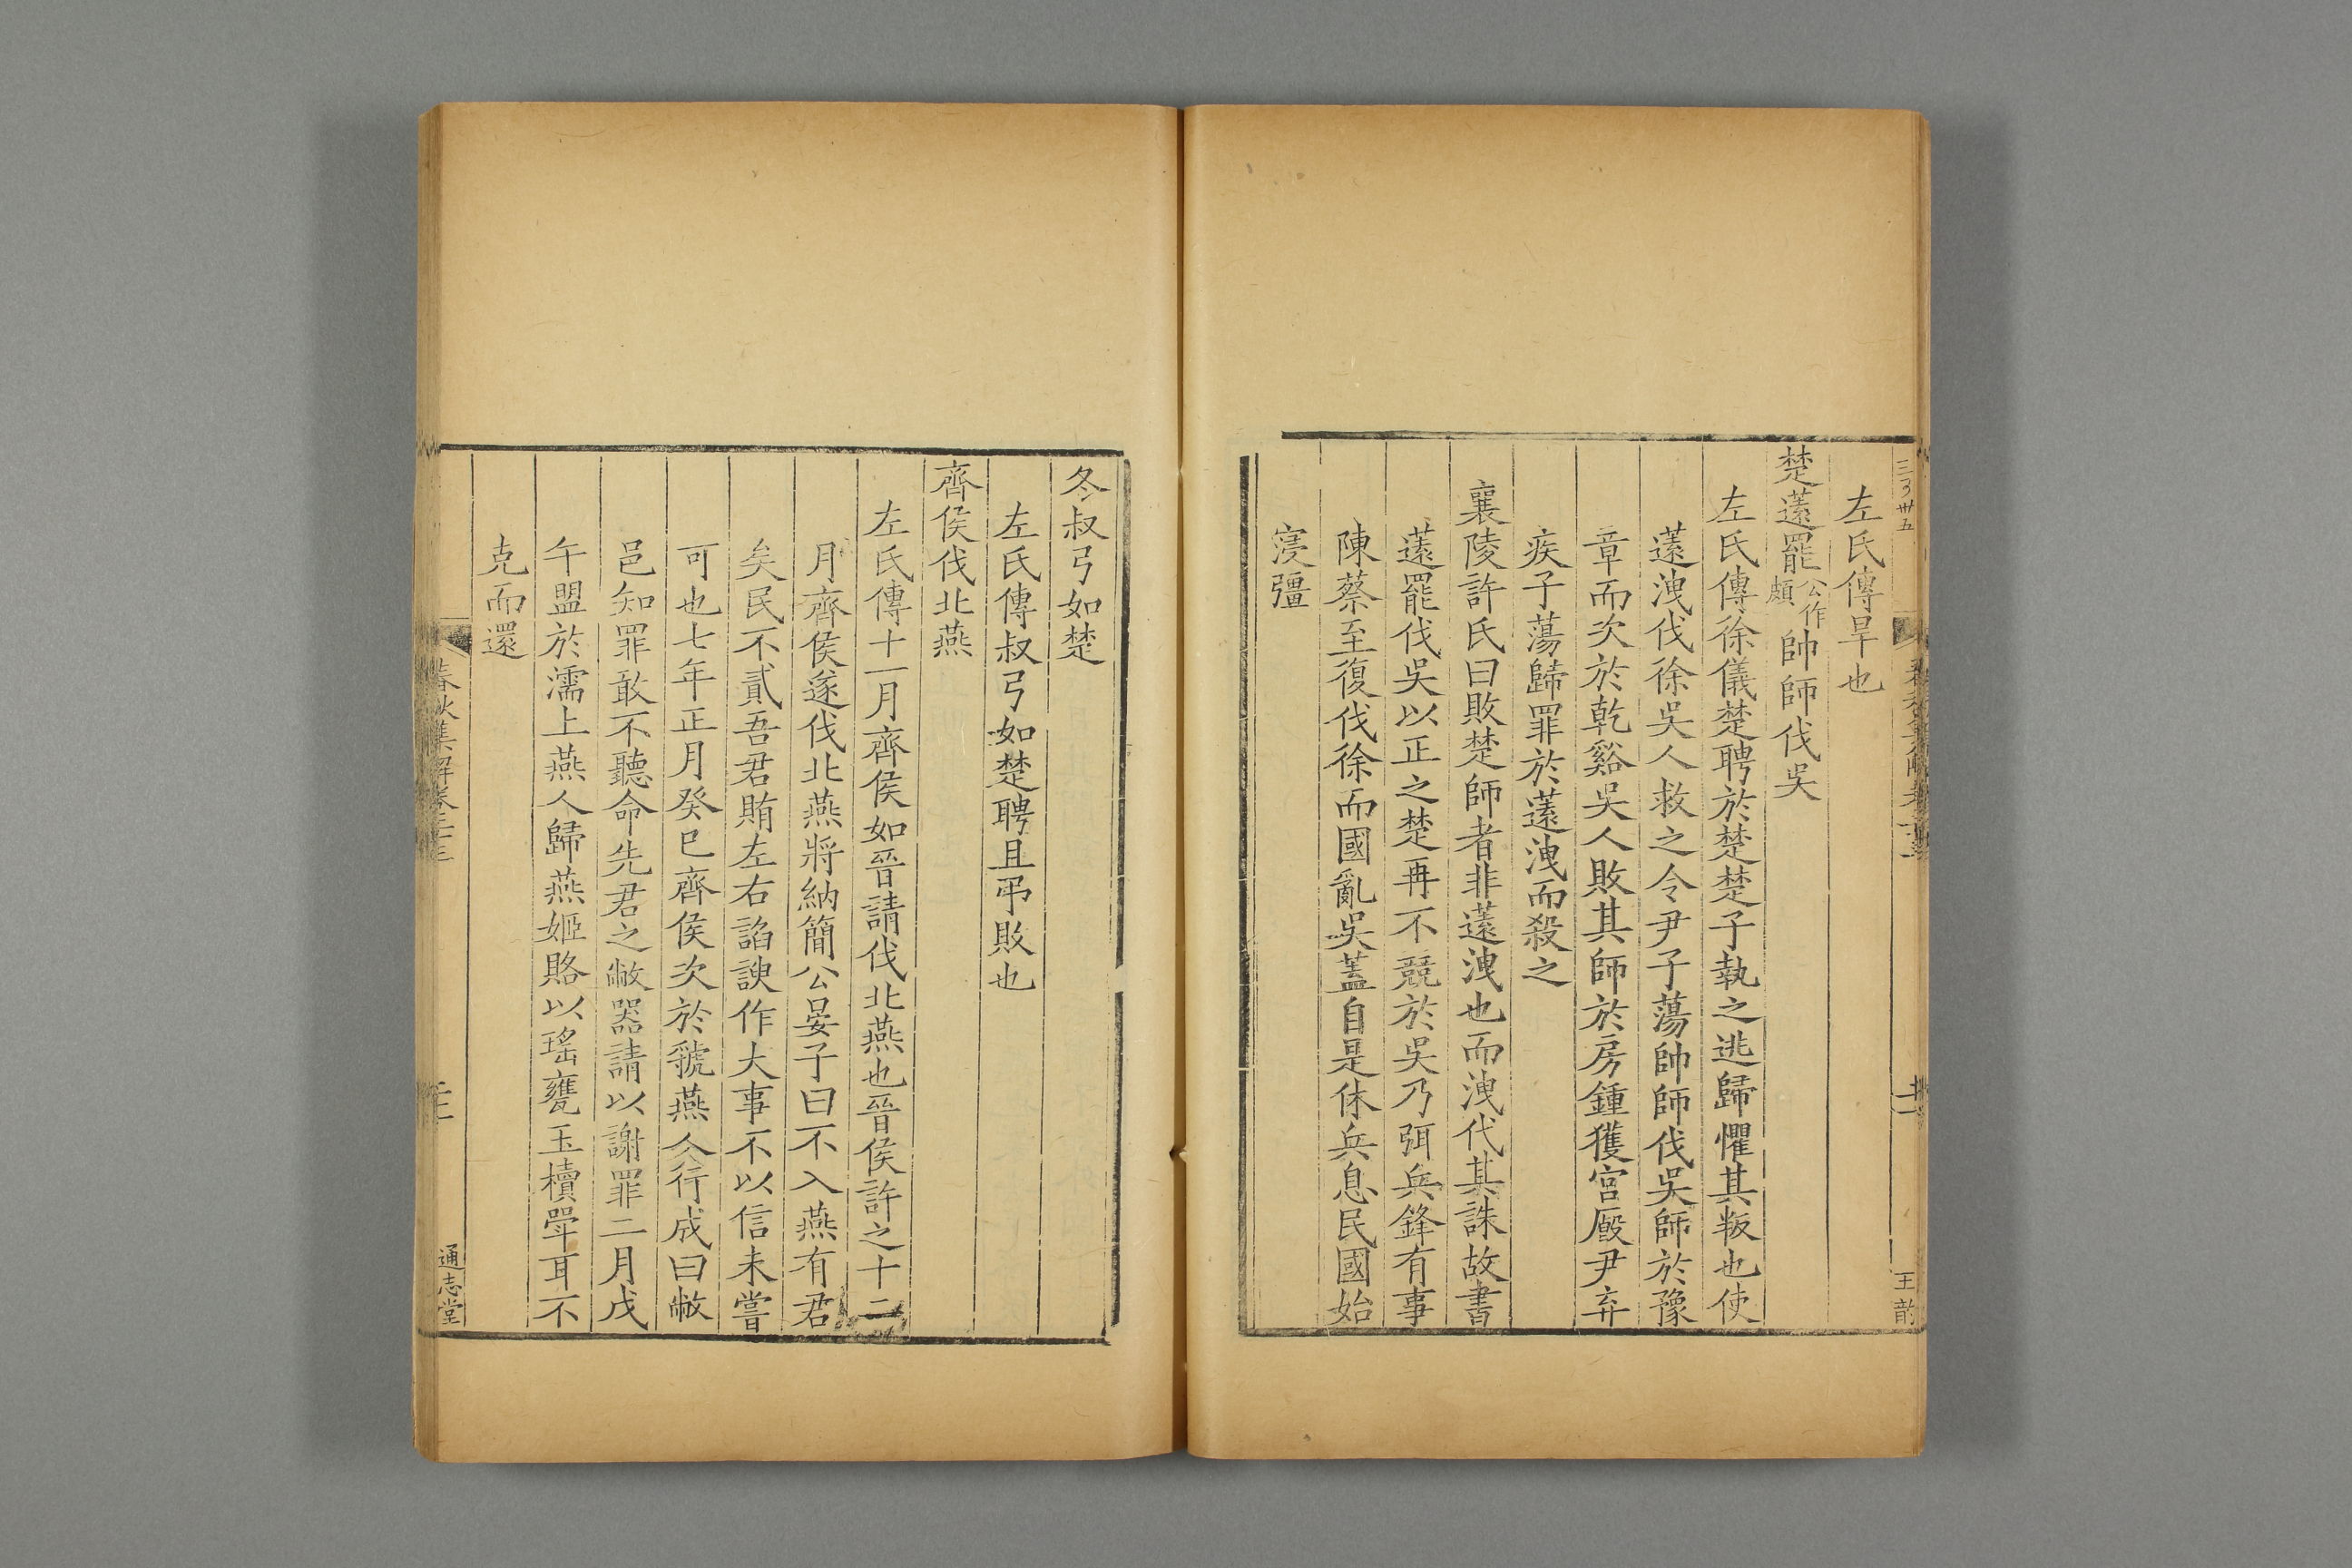 左氏傳旱也
楚薳罷公作頗帥師伐吳
左氏傳徐儀楚聘於楚楚子執之逃歸懼其叛也使
薳洩伐徐吳人救之令尹子蕩帥師伐吳師於豫
章而次於乾谿吳人敗其師於房鍾獲宮廄尹弃
疾子蕩歸罪於薳洩而殺之
襄陵許氏曰敗楚師者非薳洩也而洩代其誅故書
薳罷伐吳以正之楚再不競於吳乃弭兵鋒有事
陳蔡至復伐徐而國亂吳蓋自是休兵息民國始
寖彊
冬叔弓如楚
左氏傳叔弓如楚聘且弔敗也
齊侯伐北燕
左氏傳十一月齊侯如晉請伐北燕也晉侯許之十二
月齊侯遂伐北燕將納簡公晏子曰不入燕有君
矣民不貳吾君賄左右諂諛作大事不以信未嘗
可也七年正月癸巳齊侯次於虢燕人行成曰敝
邑知罪敢不聽命先君之敝器請以謝罪二月戊
午盟於濡上燕人歸燕姬賂以瑤罋玉櫝斝耳不
克而還
春秋集解卷二十三
通志堂